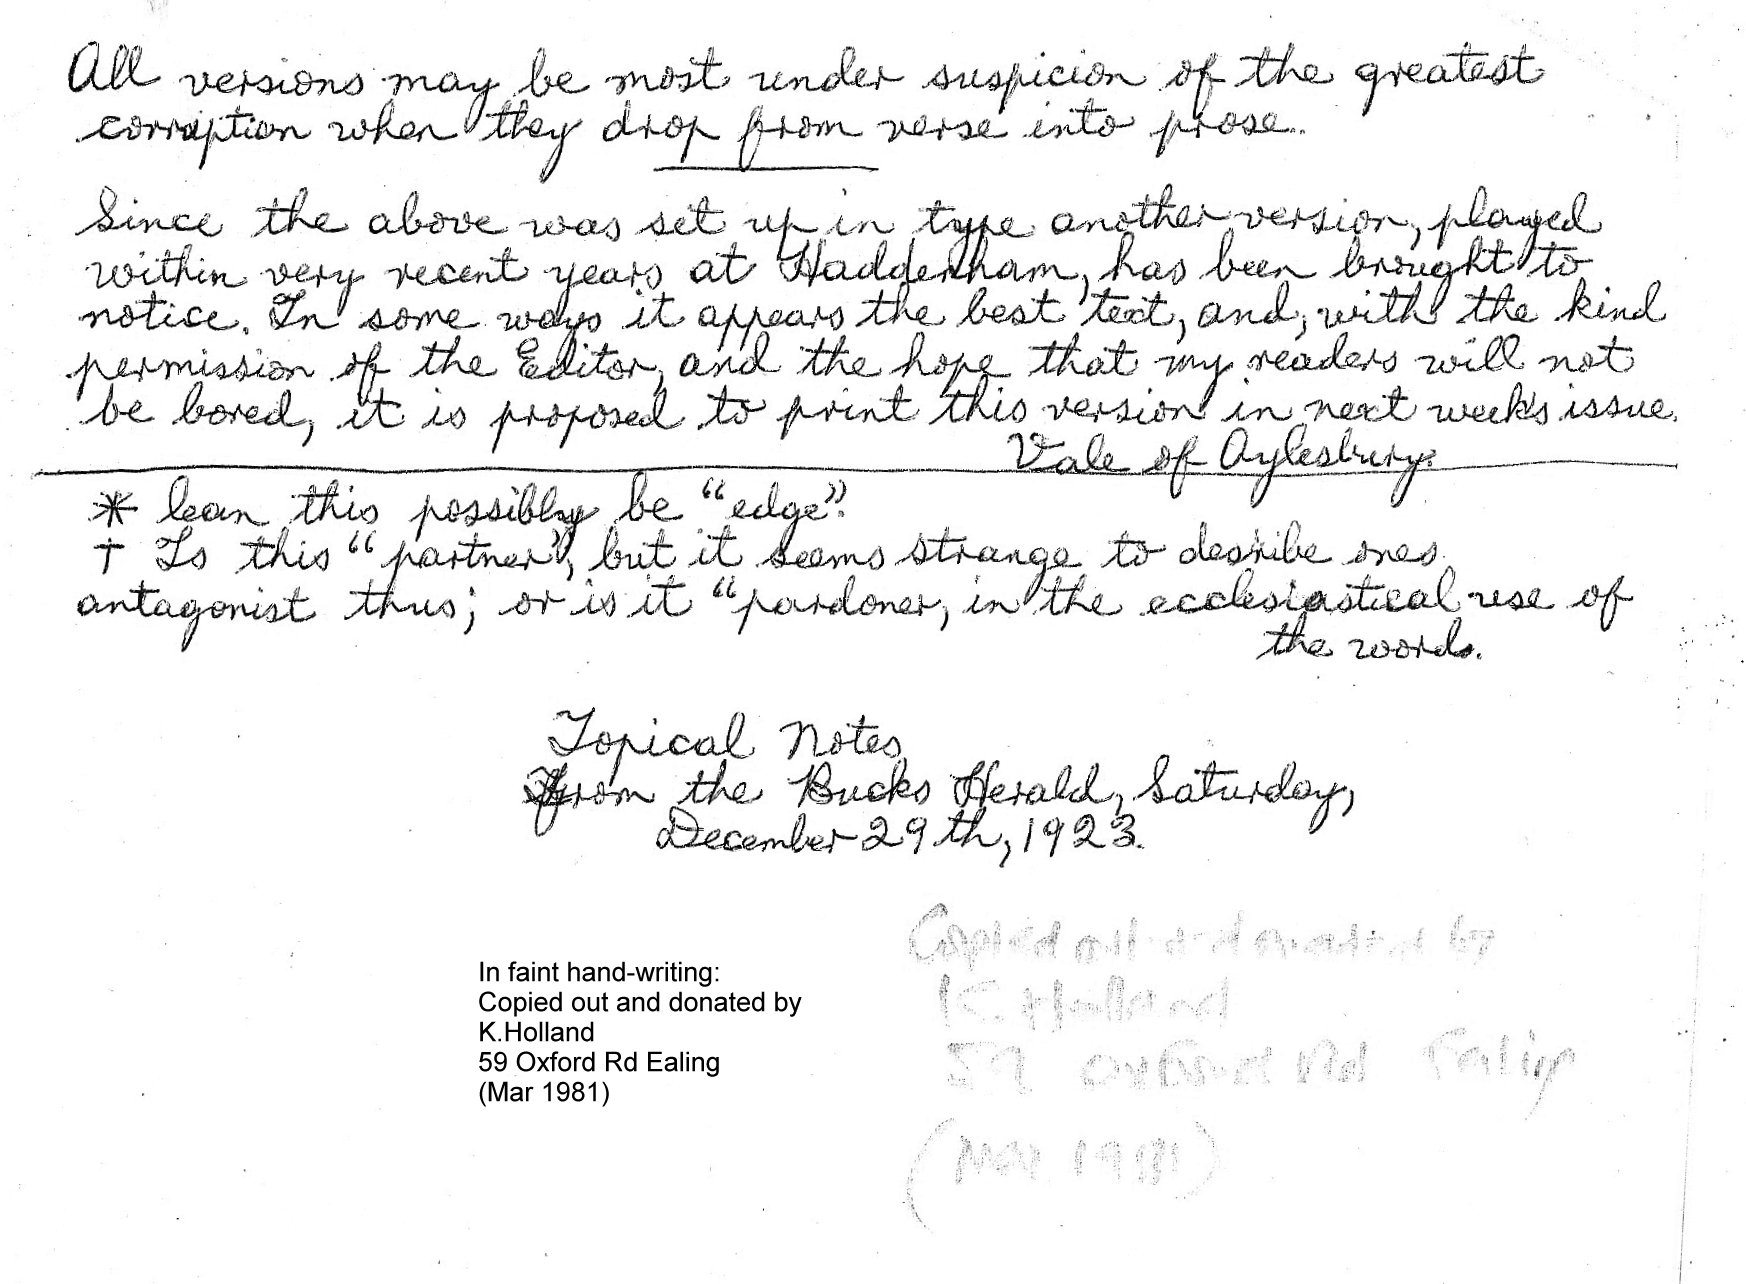 All versions may be most under suspicion of the greatest
corruption when they drop from verse into prose.
Since the above was set up in type another version, played
within very recent years at Haddenham, has been brought to
notice. In some ways it appears the best text, and, with the kind
permission of the Editor, and the hope that my readers will not
be bored, it is proposed to print this version in next week's issue.
Vale of Aylesbury.
* Can this possibly be "edge"?
† Is this "partner", but it seems strange to desribe ones
antagonist thus; or is it "pardoner, in the ecclesiastical use of
the words.
Topical Notes
From the Bucks Herald, Saturday,
December 29th, 1923.
Copied out and donated by
K. Holland
59 Oxford Rd Ealing
(Mar 1981)
In faint hand-writing:
Copied out and donated by
K.Holland
59 Oxford Rd Ealing
(Mar 1981)